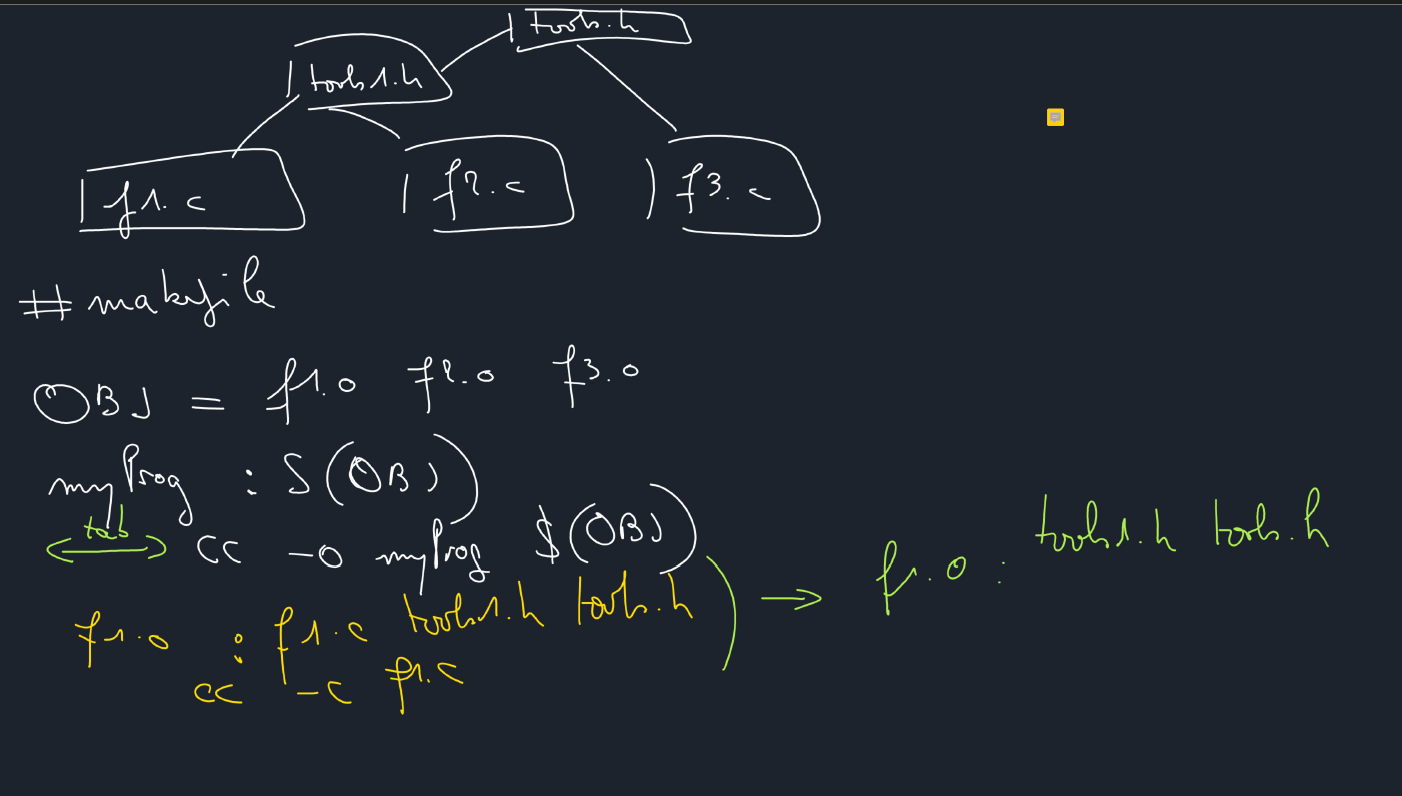 tools.h
tools1.h
f1.c f2.c f3.c
# makefile
OBJ = f1.o f2.o f3.o
myProg : $(OBJ)
tab cc -o myProg $(OBJ)
f1.o : f1.c tools1.h tools.h
cc -c f1.c
f1.o : tools1.h tools.h